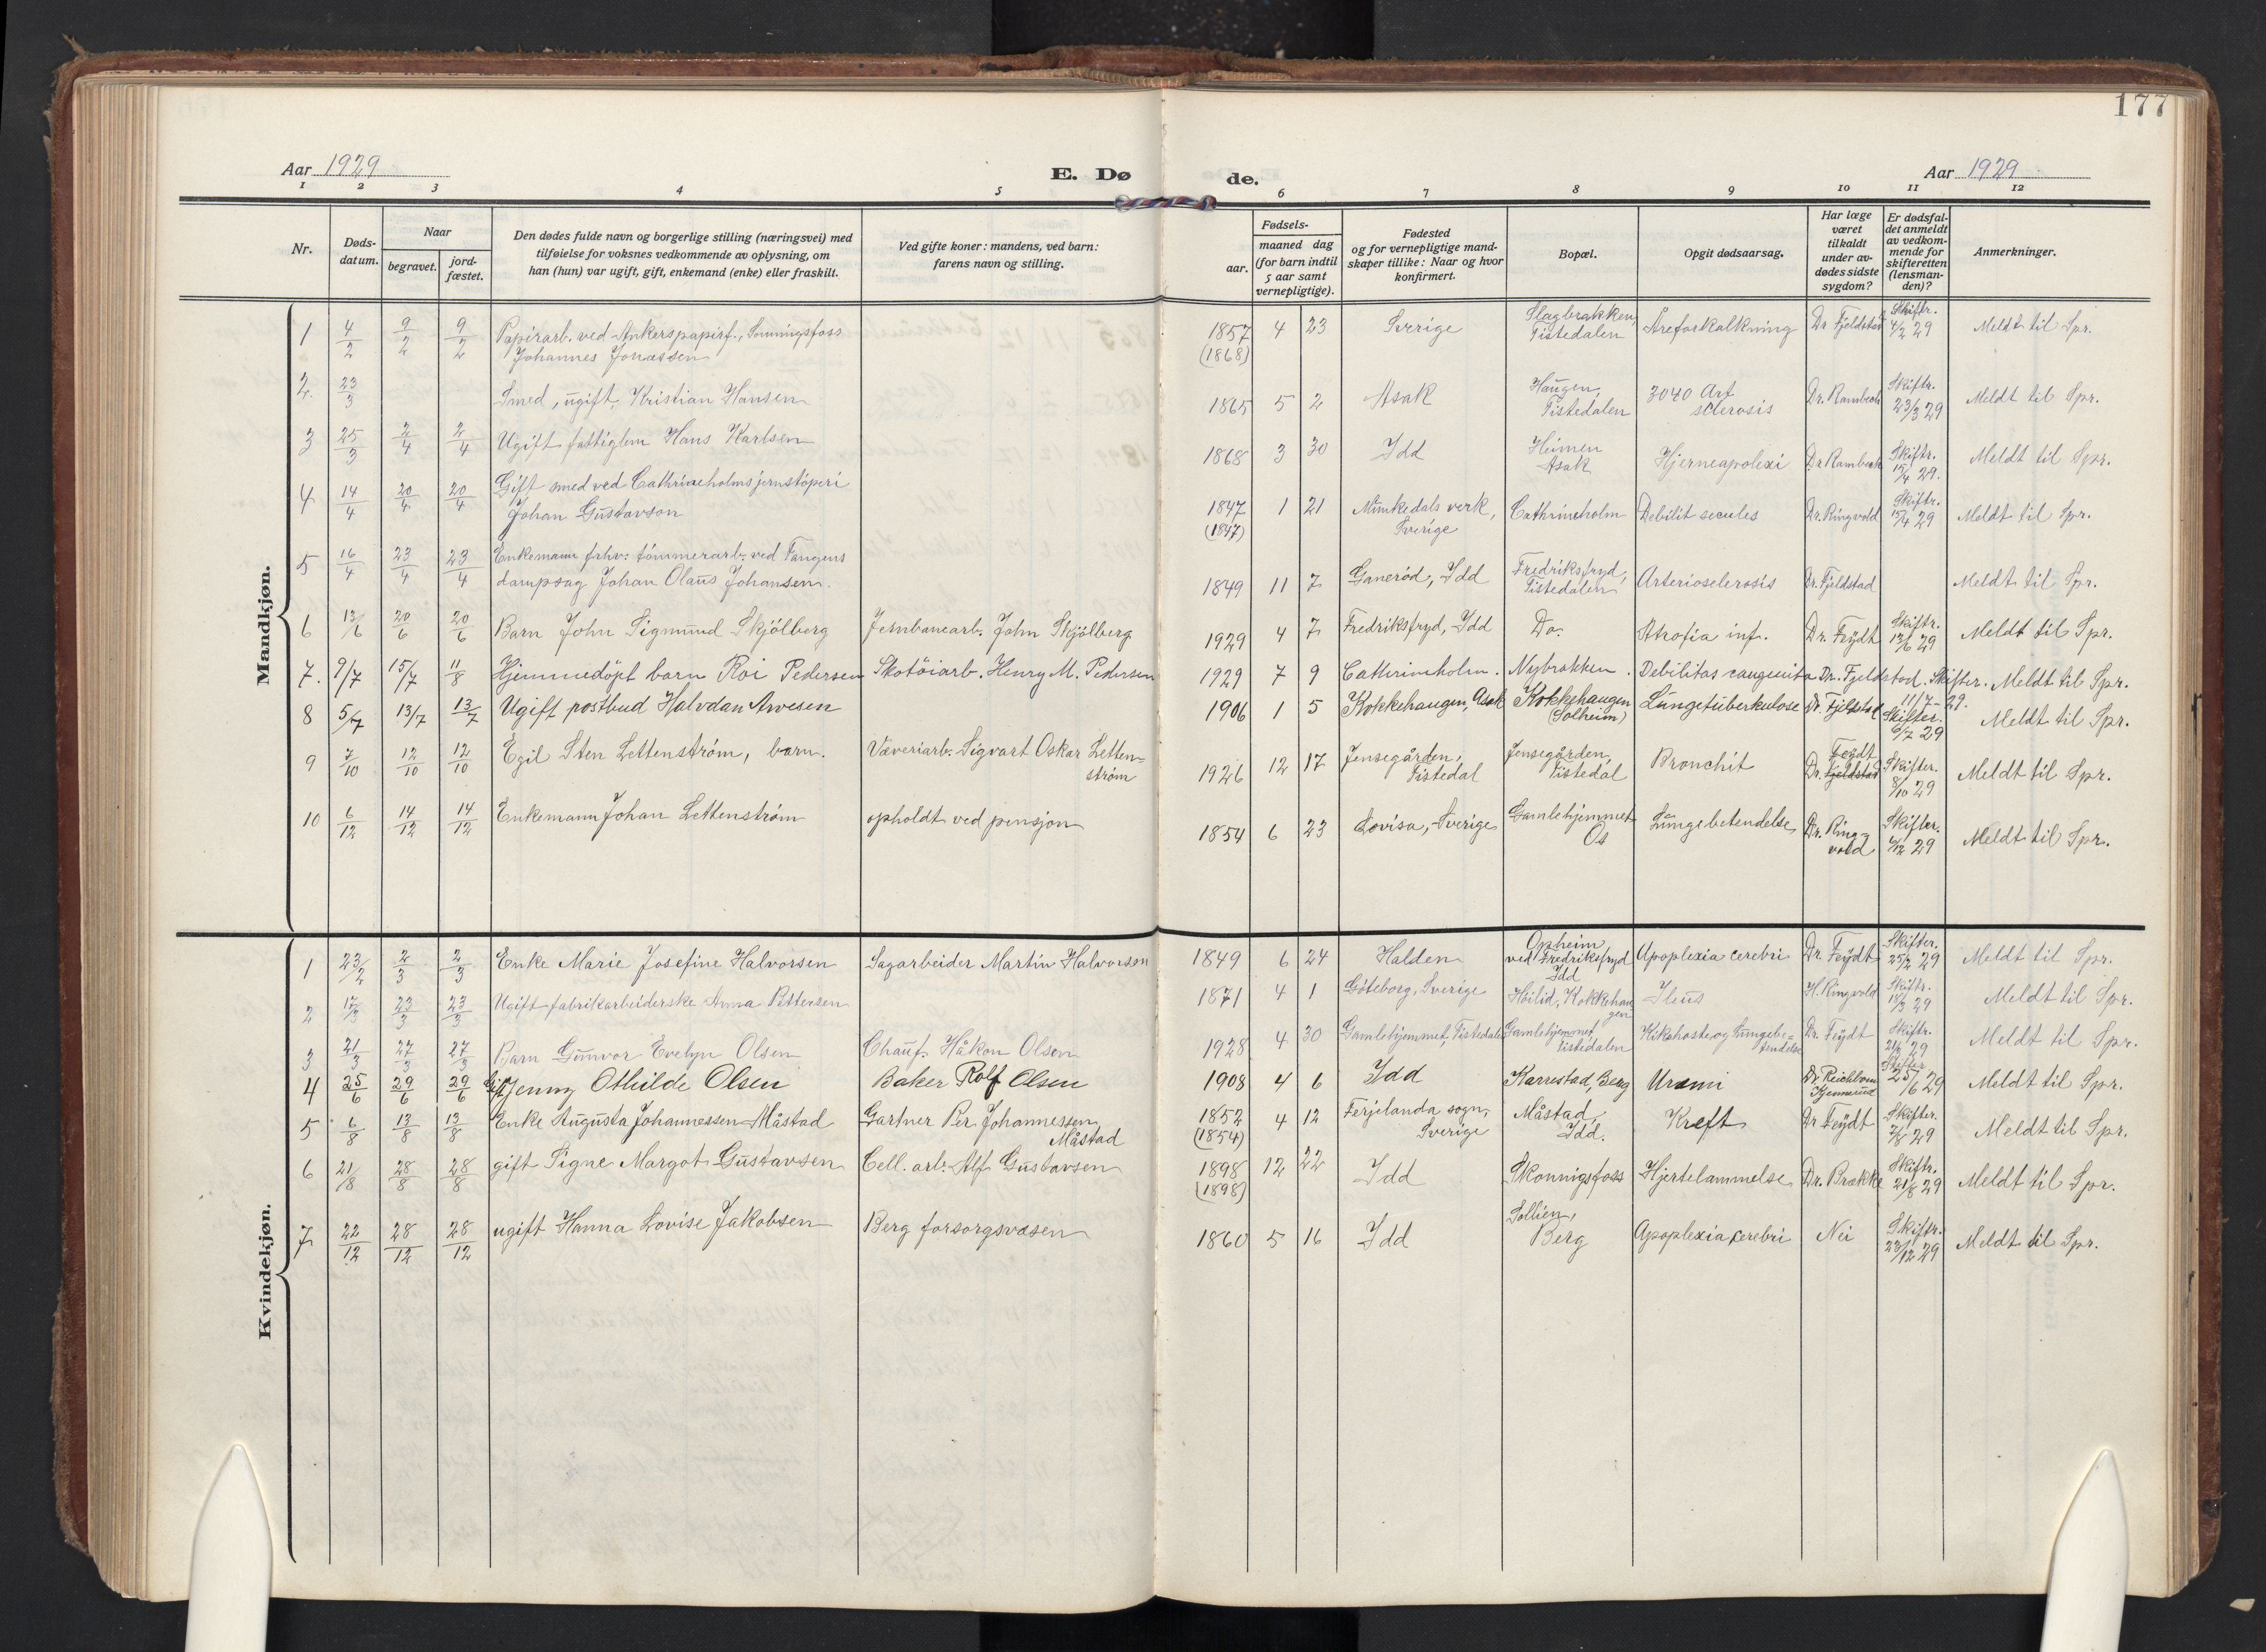 177
Aar 1929
E. Dø de.
Aar 1929
1 2 3 4 5 6 7 8 9 10 11 12
Nr.
Døds-
datum.
Naar
begravet.
jord-
fæstet.
Den dødes fulde navn og borgerlige stilling (næringsvei) med
tilføielse for voksnes vedkommende av oplysning, om
han (hun) var ugift, gift, enkemand (enke) eller fraskilt.
Ved gifte koner: mandens, ved barn:
farens navn og stilling.
Fødsels-
aar.
maaned dag
(for barn indtil
5 aar samt
vernepligtige).
Fødested
og for vernepligtige mand-
skaper tillike: Naar og hvor
konfirmert.
Bopæl.
Opgit dødsaarsag.
Har læge
været
tilkaldt
under av-
dødes sidste
sygdom?
Er dødsfal-
det anmeldt
av vedkom-
mende for
skifteretten
(lensman-
den)?
Anmerkninger.
Mandkjøn.
1 4/2 9/2 9/2 Papirarb. ved Ankerspapirf., Sonningsfoss
Johannes Jonassen
1857 (1868) 4 23 Sverige Slagbrakken, Tistedalen Åreforkalkning Dr Fjeldstad Skiftr. 4/2 29 Meldt til Spr.
2. 23/3 Smed, ugift, Kristian Hansen
1865 5 2 Asak Haugen, Tistedalen 3040 Art sclerosis Dr. Rambech Skiftr. 23/3 29 Meldt til Spr.
3 25/3 2/4 2/4 Ugift fattiglem Hans Karlsen
1868 3 30 Idd Heimen Asak Hjerneapolexi Dr Rambech Skiftr. 15/4 29. Meldt til Spr.
4 14/4 20/4 20/4 Gift smed ved Cathrineholms jernstöperi
Johan Gustavson
1847 (1847) 1 21 Munkedals verk, Sverige Cathrineholm Debilit secules Dr. Ringvold Skiftr. 15/4 29 Meldt til Spr.
5 16/4 23/4 23/4 Enkemann frhv. tömmerarb. ved Tangens
dampsag Johan Olaus Johansen.
1849 11 7 Ganeröd, Idd Fredriksfryd, Tistedalen Arteriosclerosis Dr. Fjeldstad Meldt til Spr.
6 13/6 20/6 20/6 Barn John Sigmund Skjölberg Jernbanearb. John Skjölberg
1929 4 7 Fredriksfryd, Idd Do. Atrofia inf. Dr. Feydt Skiftr. 13/6 29 Meldt til Spr.
7. 9/7 15/7 11/8 Hjemmedöpt barn Roi Pedersen Skotöiarb. Henry M. Pedersen
1929 7 9 Cathrineholm. Nybrakken. Debilitas congenita Dr. Fjeldstad. Skifter. 11/7 - 29. Meldt til Spr.
8 5/7 13/7 13/7 Ugift postbud Halvdan Arvesen
1906 1 5 Kokkehaugen, Asak Kokkehaugen (Solheim) Lungetuberkulose Dr. Fjeldstad Skifter. 6/7 29 Meldt til Spr.
9 7/10 12/10 12/10 Egil Sten Lettenström, barn. Væveriarb. Sigvart Oskar Letten=
ström
1926 12 17 Jensegården, Tistedal Jensegården, Tistedal Bronchit Dr. Feydt Fjeldstad Skifter. 8/10 29 Meldt til Spr.
10 6/12 14/12 14/12 Enkemann Johan Lettenström opholdt ved pensjon
1854 6 23 Lovisa, Sverige Gamlehjemmet Os Lungebetendelse Dr. Ring- vold Skifter. 4/12 29 Meldt til Spr.
Kvindekjøn.
1 23/2 2/3 2/3 Enke Marie Josefine Halvorsen Sagarbeider Martin Halvorsen
1849 6 24 Halden Opheim ved Fredriksfryd Idd Apoplexia cerebri Dr. Feydt Skifter. 25/2 29 Meldt til Spr.
2 17/3 23/3 23/3 Ugift fabrikarbeiderske Anna Pettersen
1871 4 1 Göteborg, Sverige Höilid, Kokkehau gen Ileus H. Ringvold Skiftr. 18/3 29 Meldt til Spr.
3 21/3 27/3 27/3 Barn Gunvor Evelyn Olsen Chauf. Håkon Olsen
1928 4 30 Gamlehjemmet, Tistedalen Gamlehjemmet, Tistedalen Kikhoste og Lungebe= tendelse Dr. Feydt Skiftr. 21/3 29 Meldt til Spr.
4 25/6 29/6 29/6 Gift Jenny Othilde Olsen Baker Rolf Olsen
1908 4 6 Idd Karrestad, Berg Uremi Dr. Skifter 25/6 29 Meldt til Spr.
5 6/8 13/8 13/8 Enke Augusta Johannessen Måstad Gartner Per Johannessen
Måstad
1852 (1854) 4 12 Ferjelanda sogn, Sverige Måstad, Idd. Kreft Dr Feydt Skifter. 7/8 29 Meldt til Spr.
6 21/8 28/8 28/8 gift Signe Margot Gustavsen Cell. arb. Alf Gustavsen
1898 (1898) 12 22 Idd Skonnigsfoss Hjertelammelse Dr. Brække Skiftr. 21/8 29 Meldt til Spr.
7 22/12 28/12 28/12 ugift Hanna Lovise Jakobsen Berg forsorgsvæsen
1860 5 16 Idd Sollien, Berg Apoplexia cerebri Nei Skiftr. 23/12 29 Meldt til Spr.